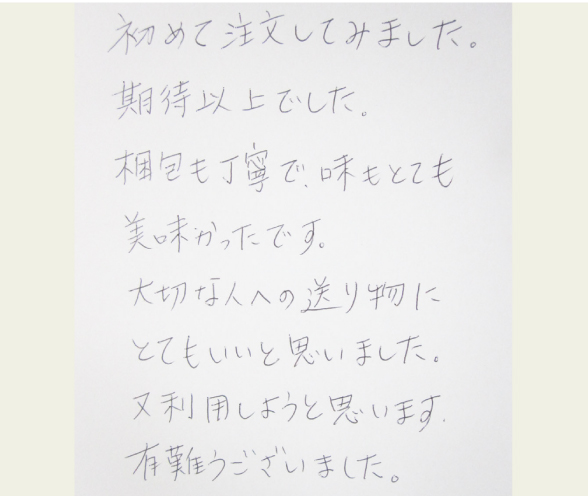 初めて注文してみました。
期待以上でした。
梱包も丁寧で、味もとても
美味かったです。
大切な人への送り物に
とてもいいと思いました。
又利用しようと思います.
有難うございました。